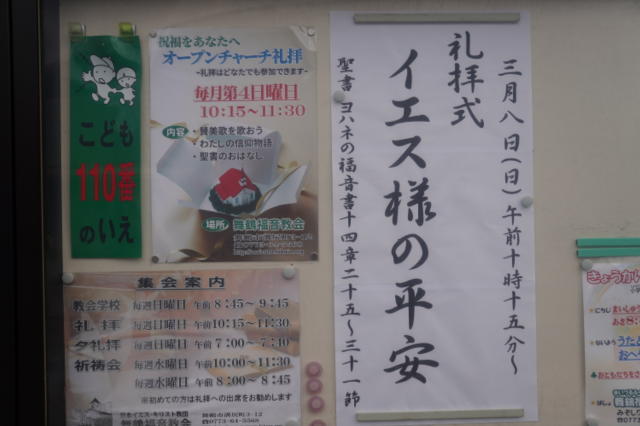 こども
110番
のいえ
祝福をあなたへ
オープンチャーチ礼拝
-礼拝はどなたでも参加できます-
毎月第4日曜日
10:15～11:30
内容
・賛美歌を歌おう
・わたしの信仰物語
・聖書のおはなし
場所
舞鶴福音教会
三月八日(日)午前十時十五分～
礼拝式
イエス様の平安
聖書 ヨハネの福音書十四章二十五～三十一節
集会案内
教会学校 毎週日曜日 午前 8:45～9:45
礼拝 毎週日曜日 午前10:15～11:30
夕礼拝 毎週日曜日 午後 7:00～7:40
祈祷会 毎週水曜日 午前10:00～11:30
毎週水曜日 午後 8:00～8:45
※初めての方は礼拝への出席をお勧めします
日本イエス・キリスト教団
舞鶴福音教会
きょうかい